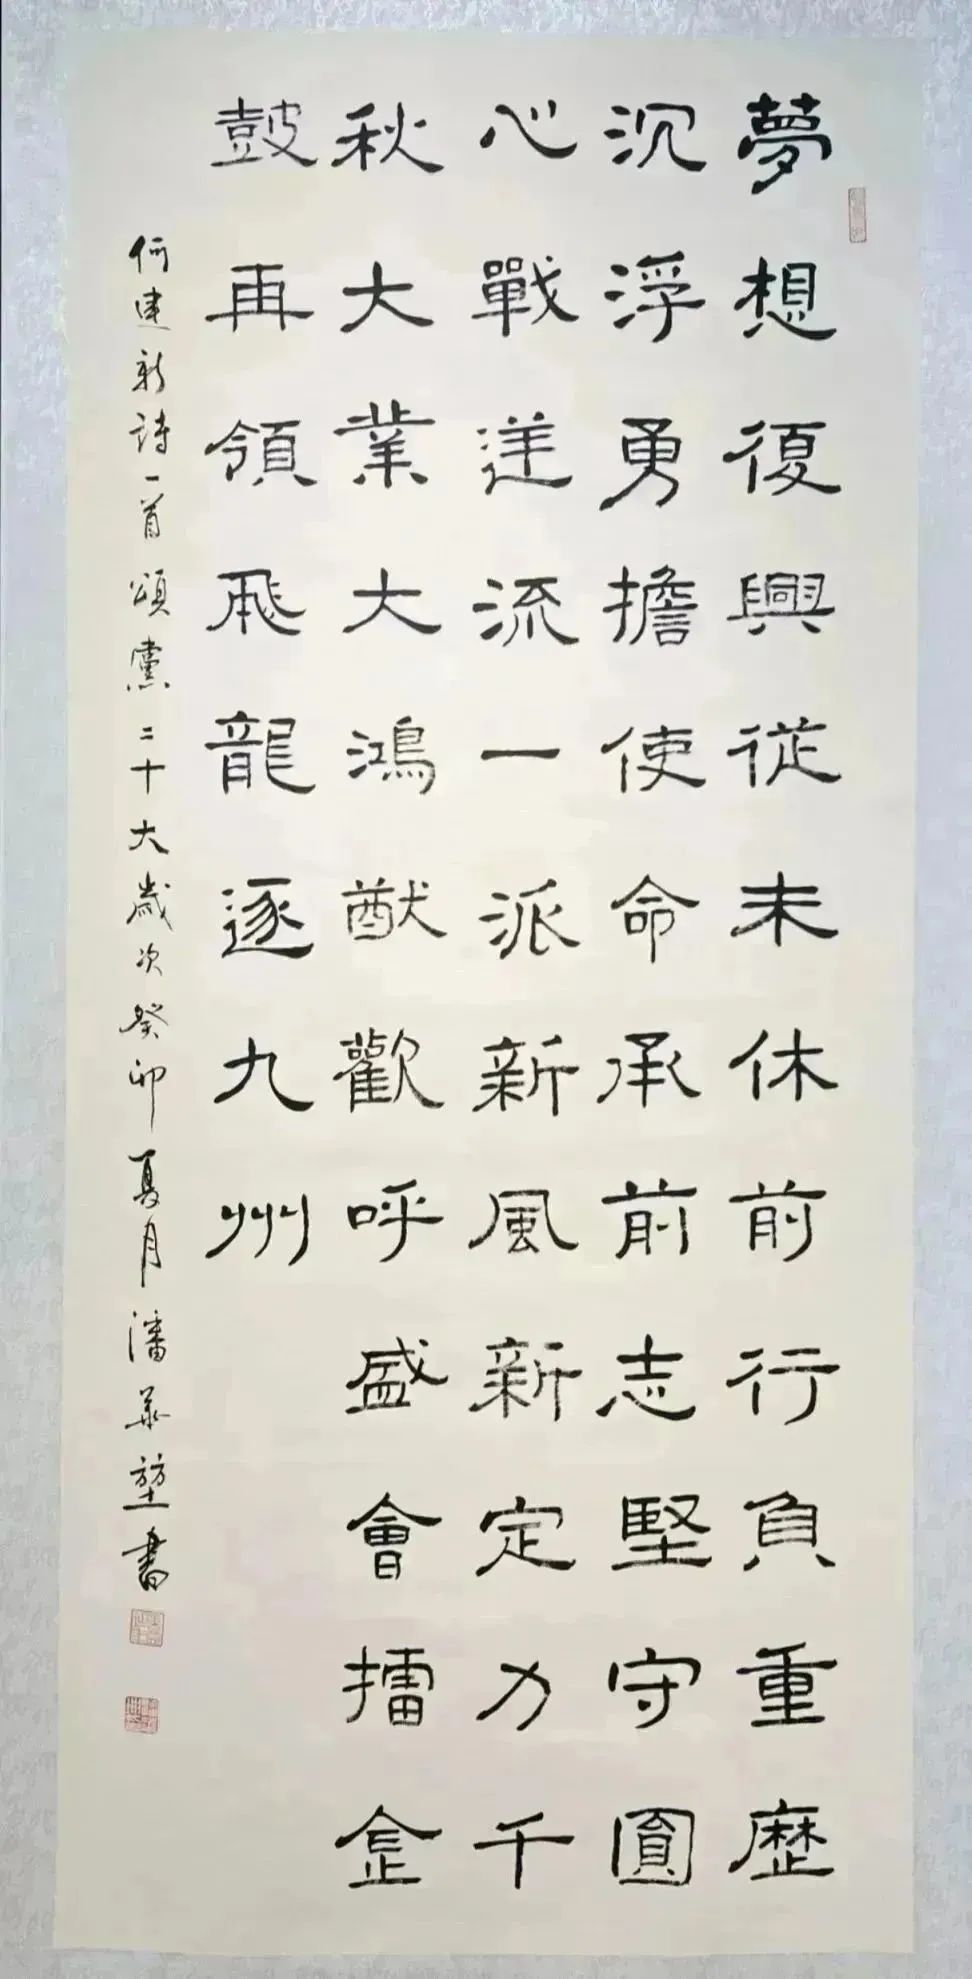 夢想復興從未休前行負重歷
沉浮勇擔使命承前志堅守圓
心戰逆流一派新風新定力千
秋大業大鴻猷歡呼盛會擂金
鼓再領飛龍逐九州
何建新詩一首頌黨二十大歲次癸卯夏月潘華堃書